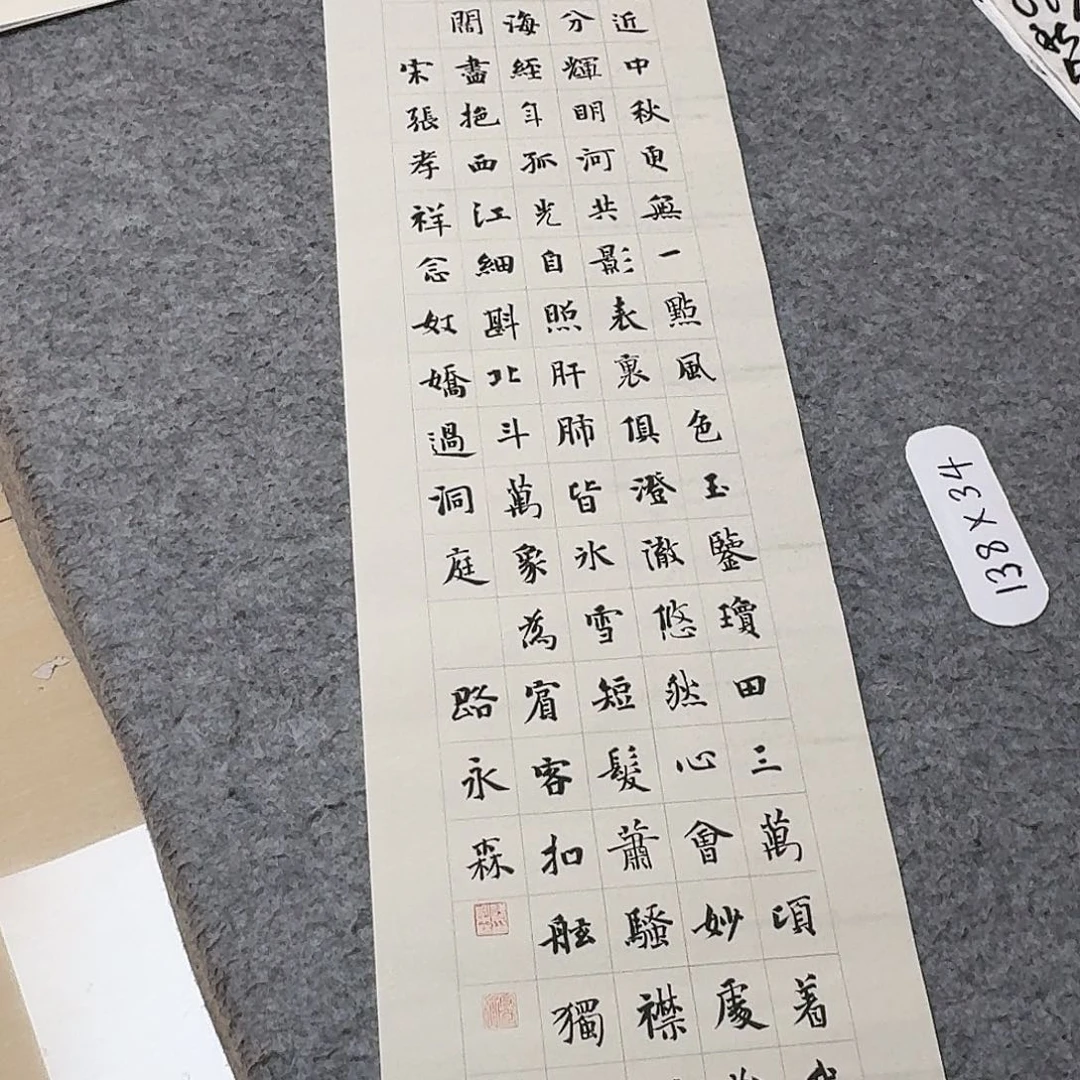 近中秋更無一點風色玉鑒瓊田三萬頃着我
分輝明河共影表裏俱澄澈悠然心會妙處
海經年孤光自照肝肺皆冰雪短髮蕭騷襟
闊盡挹西江細斟北斗萬象為賓客扣舷獨
宋張孝祥念奴嬌過洞庭
路永森
138 X 34